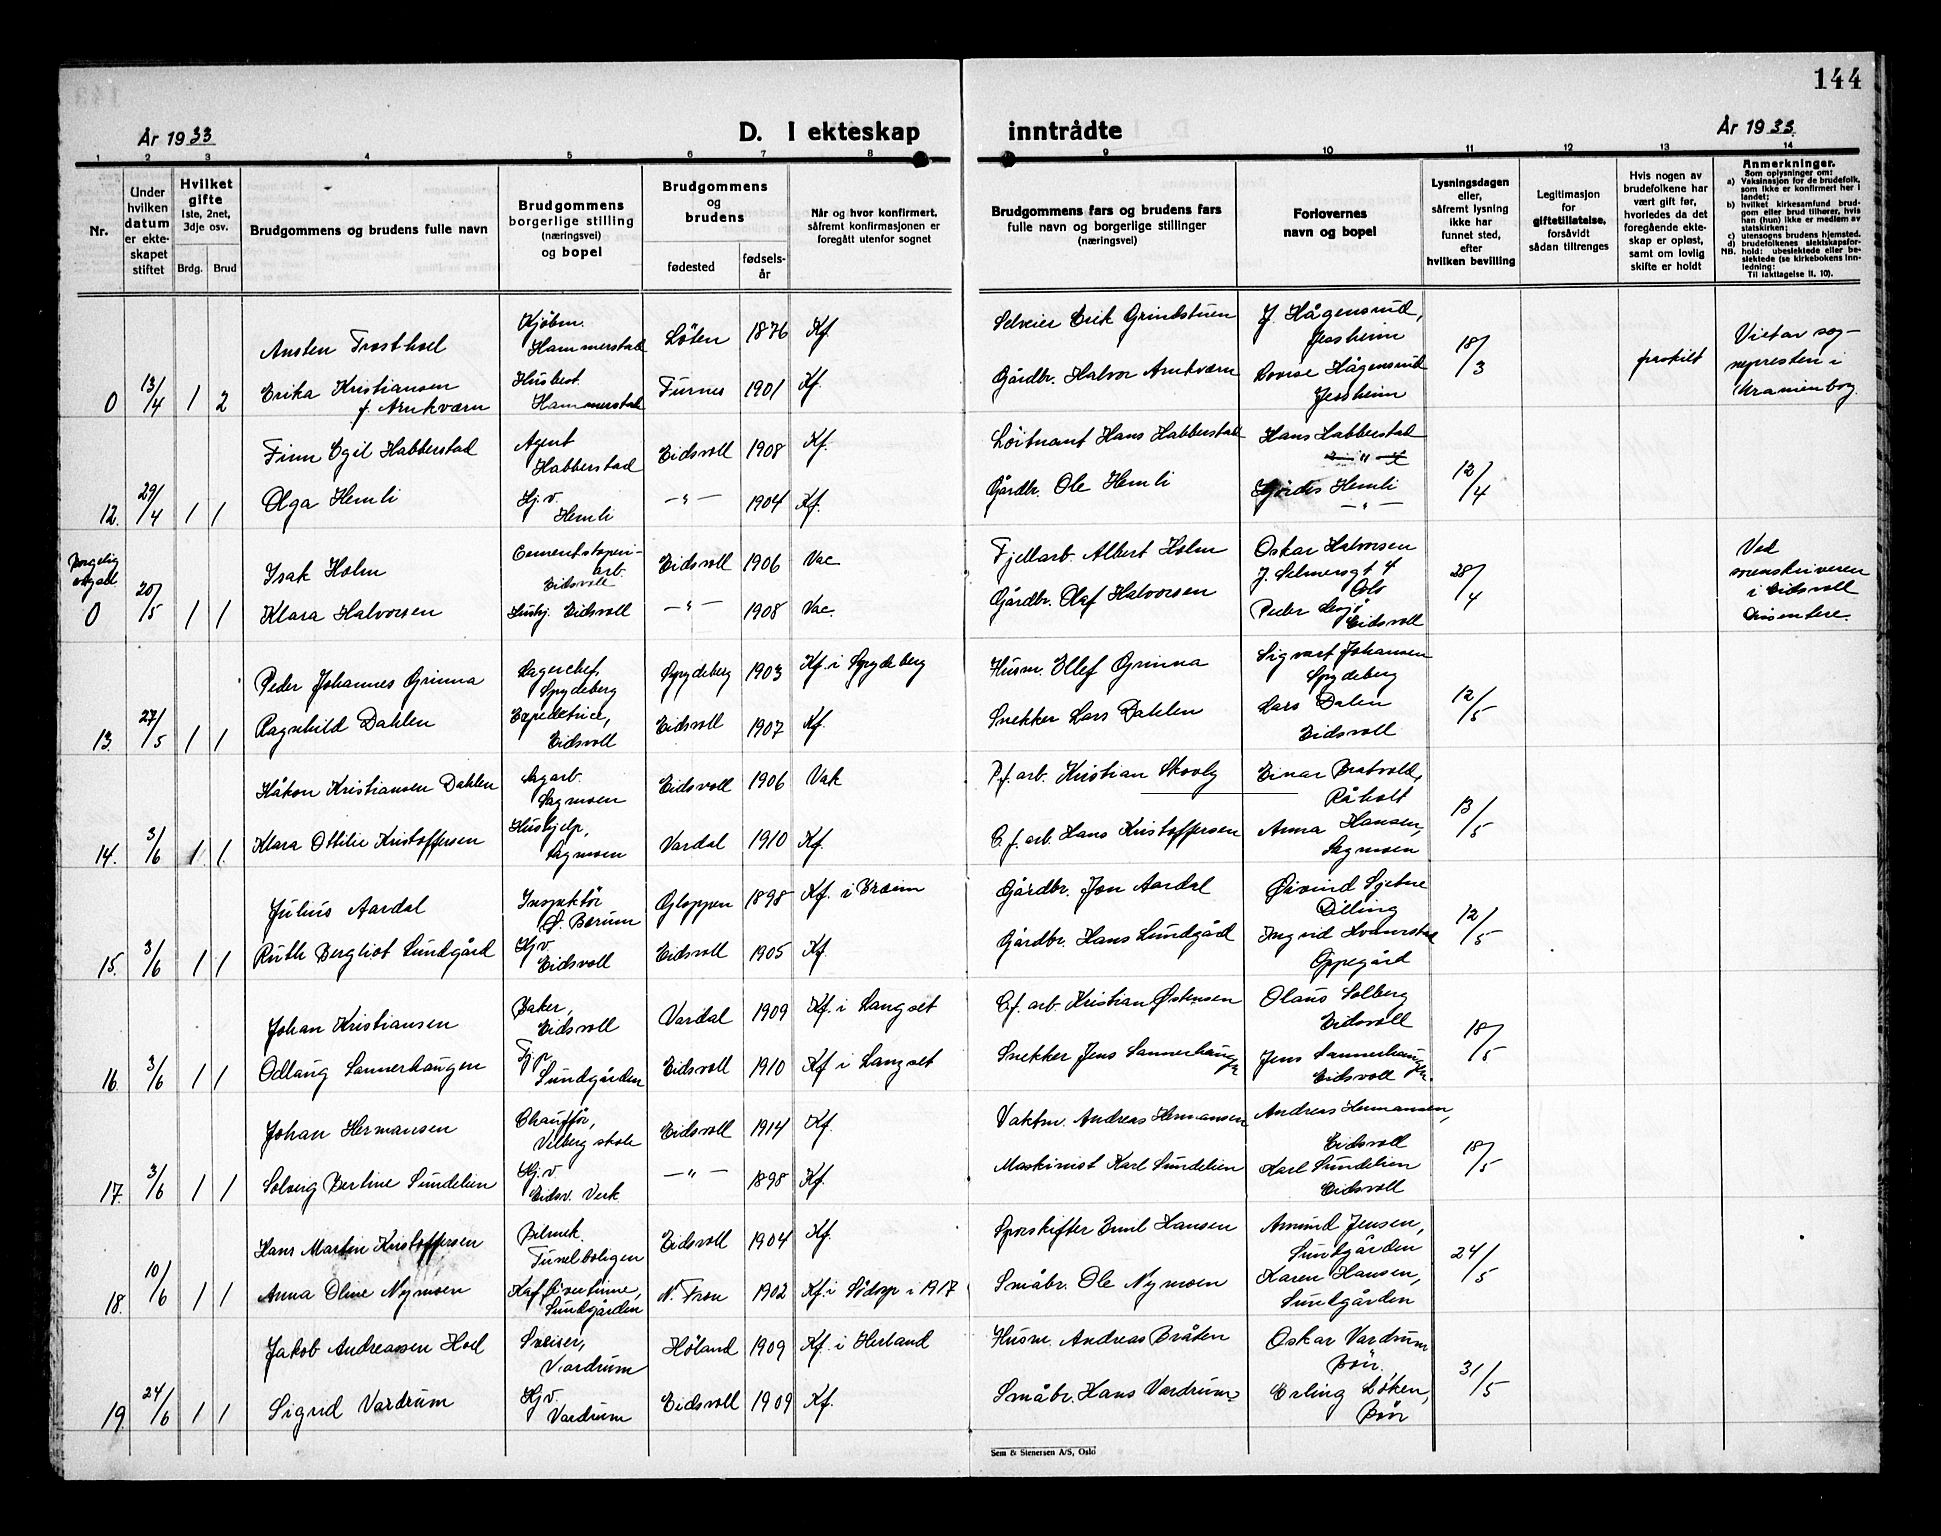 144
År 1933
D. I ekteskap inntrådte
År 1933
1 2 3 4 5 6 7 8 9 10 11 12 13 14
Nr.
Under hvilken datum er ekteskapet stiftet
Hvilket gifte 1ste, 2net, 3dje osv.
Brdg. Brud
Brudgommens og brudens fulle navn
Brudgommens borgerlige stilling (næringsvei) og bopel
Brudgommens og brudens
fødested
fødselsår
Når og hvor konfirmert, såfremt konfirmasjonen er foregått utenfor sognet
Brudgommens fars og brudens fars fulle navn og borgerlige stillinger (næringsvei)
Forlovernes navn og bopel
Lysningsdagen eller, såfremt lysning ikke har funnet sted, efter hvilken bevilling
Legitimasjon for giftetillatelse, forsåvidt sådan tiltrenges
Hvis nogen av brudefolkene har vært gift før, hvorledes da det foregående ekteskap er opløst, samt om lovlig skifte er holdt
Anmerkninger.
Som oplysninger om:
a) Vaksinasjon for de brudefolk, som ikke er konfirmert her i landet;
b) hvilket kirkesamfund brudgom eller brud tilhører, hvis han (hun) ikke er medlem av statskirken;
c) utensogns brudens hjemsted.
d) brudefolkenes slektskapsforhold: ubeslektede eller beslektede (se kirkebokens innledning:
NB. Til iakttagelse II. 10).
Ansten Trosthoel Kjøbm. Hammerstad Løten 1876 Kf. Selveier Erik Grindstuen J. Hågensrud, Jessheim 18/3 fraskilt Viet av sognepresten i
0 13/4 1 2 Erika Kristiansen f. Arnkværn Husbest. Hammerstad Furnes 1901 Kf. Gårdbr. Halvor Arnkværn Hågensrud Jessheim
Finn Egil Habberstad Agent Habberstad Eidsvoll 1908 Kf. Løitnant Hans Habberstad Hans Habberstad
12. 29/4 1 1 Olga Hemli Hj.v. Hemli — " — 1904 Kf. Gårdbr. Ole Hemli Hjørdis Hemli — " — 12/4
Borgelig
Isak Holm Cementstøperiarb. Eidsvoll Eidsvoll 1906 Vac Fjellarb. Albert Holm Oskar Halvorsen J. Selmersgt 4 Oslo 28/4 Ved sorenskriveren i Eidsvoll Dissentere.
0 20/5 1 1 Klara Halvorsen Hushj. Eidsvoll — " — 1908 Vac. Gårdbr. Olaf Halvorsen Peder Eidsvoll
Peder Johannes Grinna Lagerchef, Spydeberg Spydeberg 1903 Kf. i Spydeberg Husm. Ellef Grinna Sigvart Johansen Spydeberg
13. 27/5 1 1 Ragnhild Dahlen Expeditrice, Eidsvoll Eidsvoll 1907 Kf. Snekker Lars Dahlen Lars Dalen Eidsvoll 12/5
Håkon Kristiansen Dahlen Sagarb. Sagmoen Eidsvoll 1906 Vak P.f. arb. Kristian Skovly Einar Bratvold, Råholt
14. 3/6 1. 1. Klara Ottilie Kristoffersen Hushjelp, Sagmoen Vardal 1910 Kf. C.f. arb. Hans Kristoffersen Anna Hansen, Sagmoen 13/5
Julius Aardal Inspektør Ø. Bærum Gloppen 1898 Kf. i Breim Gårdbr. Jon Aardal Øivind Sjetne Dilling
15. 3/6 1 1 Ruth Bergliot Sundgård Hjv. Eidsvoll Eidsvoll 1905 Kf. Gårdbr. Hans Sundgård Ingrid Oppegård 12/5
Johan Kristiansen Baker, Eidsvoll Vardal 1909 Kf. i Langset C.f. arb. Kristian Østensen Olaus Solberg Eidsvoll
16. 3/6 1 1 Odlaug Sannerhaugen Sundgården Eidsvoll 1910 Kf i Langset Snekker Jens Sannerhaugen Jens Sannerhaugen. Eidsvoll 18/5
Johan Hermansen Chauffør, Vilberg skole Eidsvoll 1914 Kf. Vaktm. Andreas Hermansen Andreas Hermansen, Eidsvoll
17. 3/6 1 1 Solveig Berline Sundelien Hj.v. Eidsv. Verk — " — 1898 Kf. Maskinist Karl Sundelien Karl Sundelien Eidsvoll 18/5
Hans Martin Kristoffersen Bilmek. Tunelboligen Eidsvoll 1904 Kf. Sporskifter Emil Hansen Amund Jensen, Sundgården
18. 10/6 1 1 Anna Oline Nymoen Sundgården N. Fron 1902 Kf. i Sødorp i 1917 Småbr. Ole Nymoen Karen Hansen, Sundgården 24/5
Jakob Andreassen Hoel Sveiser, Vardrum Høland 1909 Kf. i Herland Husm. Andreas Bråten Oskar Vardrum Bön.
19. 24/6 1 1 Sigrid Vardrum Hjv. Vardrum Eidsvoll 1909 Kf. Småbr. Hans Vardrum Erling Løken, Bön 31/5
Sem & Stenersen A/S, Oslo